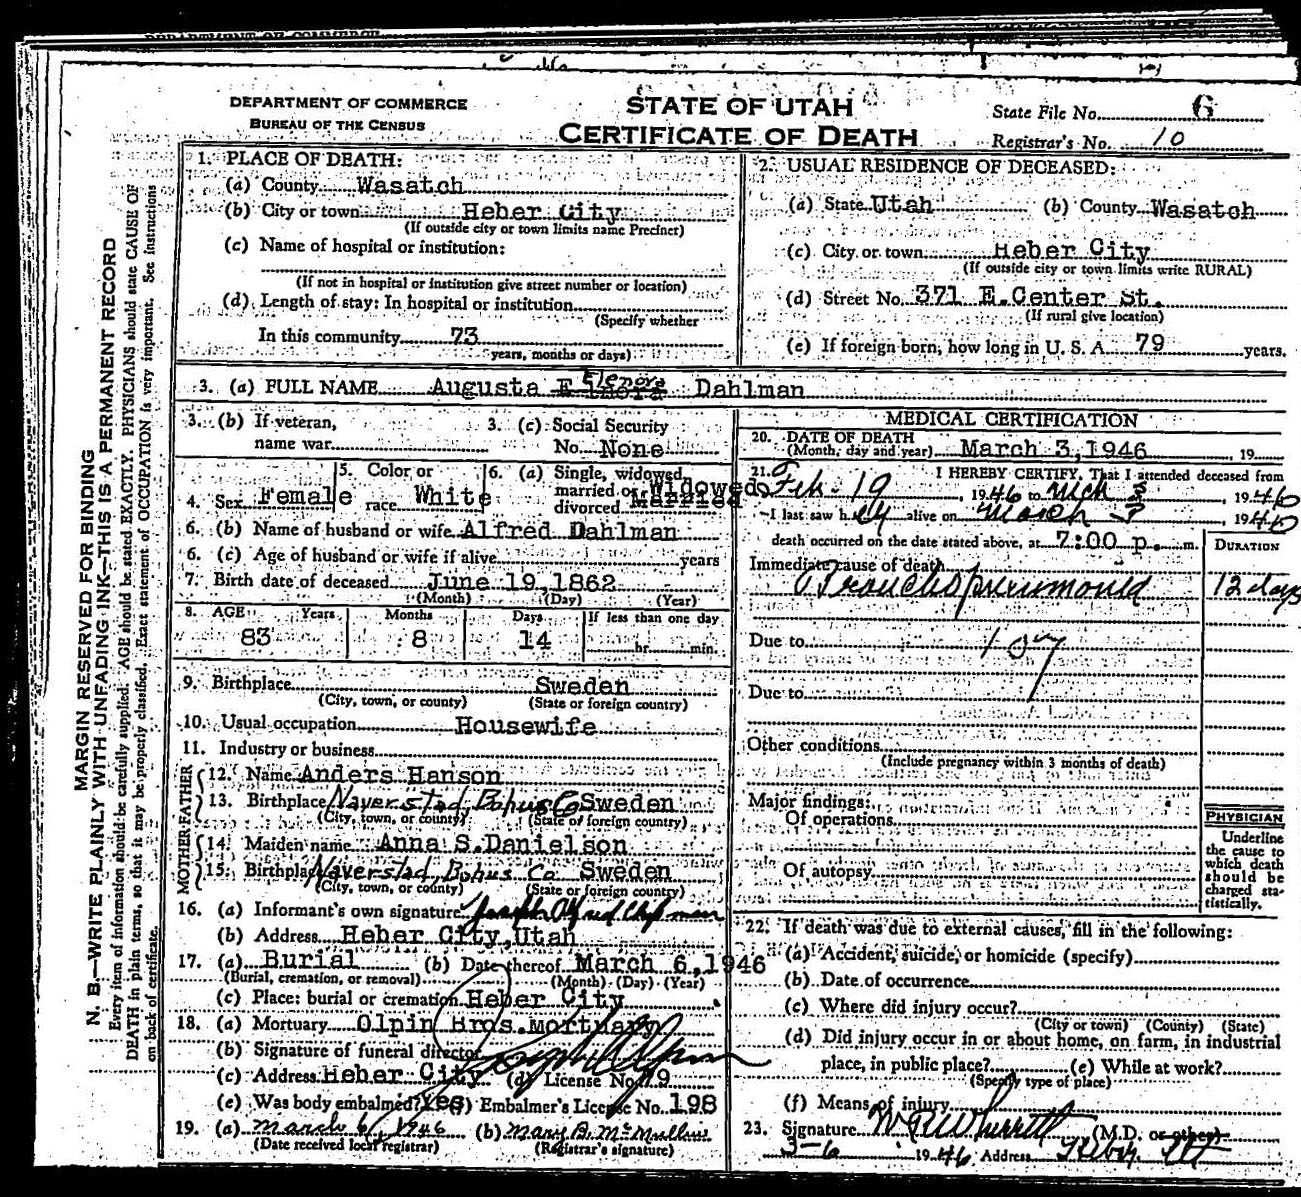 DEPARTMENT OF COMMERCE
BUREAU OF THE CENSUS
STATE OF UTAH
CERTIFICATE OF DEATH
State File No. 6
Registrar's No. 10
MARGIN RESERVED FOR BINDING
N. B.—WRITE PLAINLY WITH UNFADING INK—THIS IS A PERMANENT RECORD
Every item of information should be carefully supplied. AGE should be stated EXACTLY. PHYSICIANS should state CAUSE OF
DEATH in plain terms, so that it may be properly classified. Exact statement of OCCUPATION is very important. See instructions
on back of certificate.
1. PLACE OF DEATH:
(a) County Wasatch
(b) City or town Heber City
(If outside city or town limits name Precinct)
(c) Name of hospital or institution:
(If not in hospital or institution give street number or location)
(d) Length of stay: In hospital or institution
(Specify whether
In this community 73
years, months or days)
2. USUAL RESIDENCE OF DECEASED:
(a) State Utah (b) County Wasatch
(c) City or town Heber City
(If outside city or town limits write RURAL)
(d) Street No. 371 E.Center St.
(If rural give location)
(e) If foreign born, how long in U. S. A. 79 years.
3. (a) FULL NAME Augusta E Elenora Dahlman
3. (b) If veteran, name war
3. (c) Social Security No. None
4. Sex Female
5. Color or race White
6. (a) Single, widowed, married or divorced Widowed Married
6. (b) Name of husband or wife Alfred Dahlman
6. (c) Age of husband or wife if alive years
7. Birth date of deceased June 19,1862
(Month) (Day) (Year)
8. AGE Years Months Days If less than one day
83 8 14 hr. min.
9. Birthplace Sweden
(City, town, or county) (State or foreign country)
10. Usual occupation Housewife
11. Industry or business
FATHER
12. Name Anders Hanson
13. Birthplace Naverstad, Bohus Co Sweden
(City, town, or county) (State or foreign country)
MOTHER
14. Maiden name Anna S.Danielson
15. Birthplace Naverstad, Bohus Co Sweden
(City, town, or county) (State or foreign country)
16. (a) Informant's own signature Joseph Alfred
(b) Address Heber City,Utah
17. (a) Burial (b) Date thereof March 6,1946
(Burial, cremation, or removal) (Month) (Day) (Year)
(c) Place: burial or cremation Heber City
18. (a) Mortuary Olpin Bros.Mortuary
(b) Signature of funeral director
(c) Address Heber City (d) License No. 79
(e) Was body embalmed? Yes (f) Embalmer's License No. 198
19. (a) March 6, 1946 (b) Mary B. McMullin
(Date received local registrar) (Registrar's signature)
MEDICAL CERTIFICATION
20. DATE OF DEATH
(Month, day and year) March 3,1946 19
21. I HEREBY CERTIFY, That I attended deceased from
Feb. 19, 1946 to Mch 3, 1946
I last saw her alive on March 3, 1946
death occurred on the date stated above, at 7:00 p. m.
DURATION
Immediate cause of death
12 days
Due to
Due to
Other conditions
(Include pregnancy within 3 months of death)
Major findings:
Of operations
Of autopsy
PHYSICIAN
Underline
the cause to
which death
should be
charged sta-
tistically.
22. If death was due to external causes, fill in the following:
(a) Accident, suicide, or homicide (specify)
(b) Date of occurrence
(c) Where did injury occur?
(City or town) (County) (State)
(d) Did injury occur in or about home, on farm, in industrial
place, in public place? (e) While at work?
(Specify type of place)
(f) Means of injury
23. Signature (M.D. or other)
3-6 1946 Address Heber, Ut